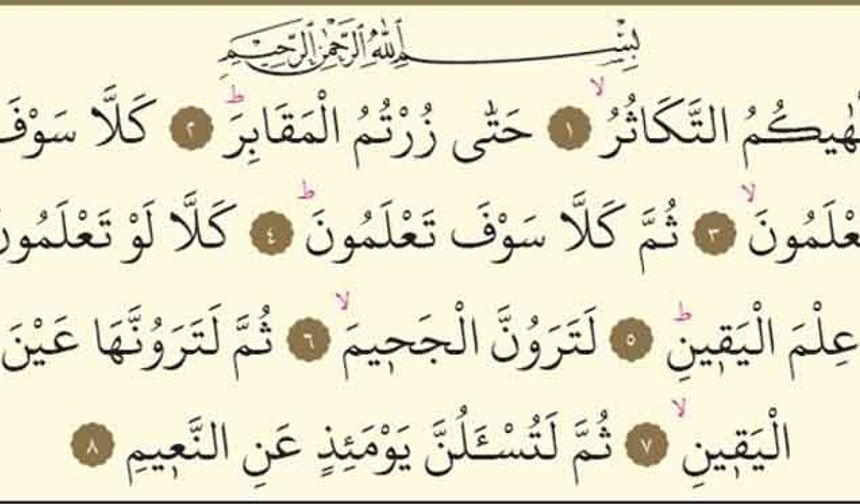 بِسْمِ اللّٰهِ الرَّحْمٰنِ الرَّحِيمِ
ـهٰيكُمُ التَّكَاثُرُۙ ﴿١﴾ حَتّٰى زُرْتُمُ الْمَقَابِرَۜ ﴿٢﴾ كَلَّا سَوْفَ
ـعْلَمُونَۙ ﴿٣﴾ ثُمَّ كَلَّا سَوْفَ تَعْلَمُونَۜ ﴿٤﴾ كَلَّا لَوْ تَعْلَمُونَ
عِلْمَ الْيَقٖينِۜ ﴿٥﴾ لَتَرَوُنَّ الْجَحٖيمَۙ ﴿٦﴾ ثُمَّ لَتَرَوُنَّهَا عَيْنَ
الْيَقٖينِۙ ﴿٧﴾ ثُمَّ لَتُسْـَٔلُنَّ يَوْمَئِذٍ عَنِ النَّعٖيمِ ﴿٨﴾